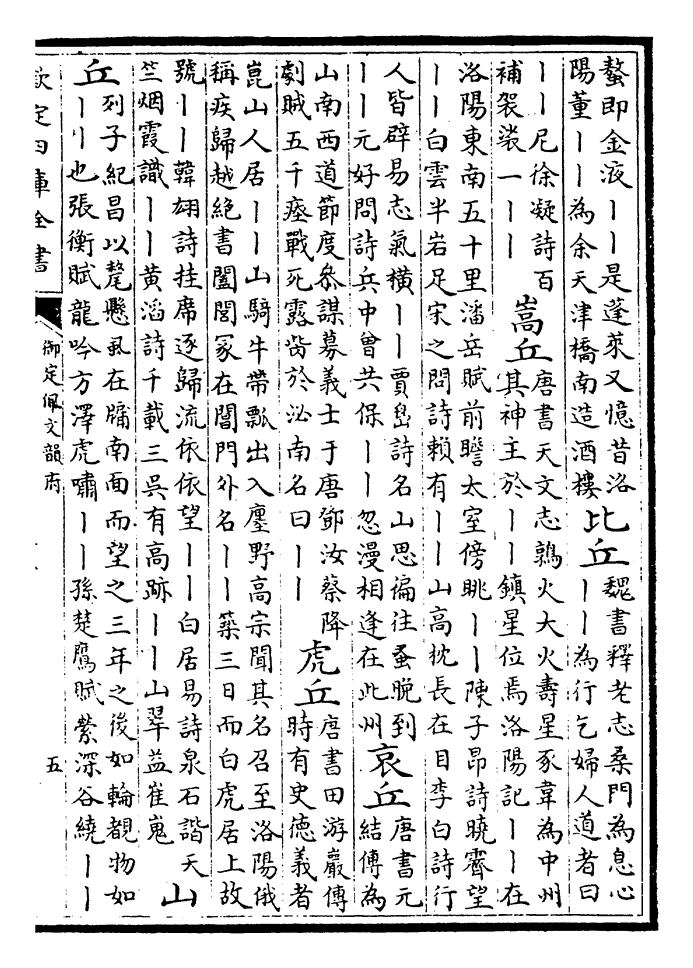 鼇即金液丨丨是蓬萊又憶昔洛
陽董丨丨為余天津橋南造酒樓
比丘
魏書釋老志桑門為息心
丨丨為行乞婦人道者曰
丨丨尼徐凝詩百
補袈裟一丨丨
嵩丘
唐書天文志鶉火大火壽星豕韋為中州
其神主於丨丨鎮星位焉洛陽記丨丨在
洛陽東南五十里潘岳賦前瞻太室傍眺丨丨陳子昂詩曉霽望
丨丨白雲半岩足宋之問詩賴有丨丨山高枕長在目李白詩行
人皆辟易志氣橫丨丨賈島詩名山思徧往蚤晚到
丨丨元好問詩兵中曾共保丨丨忽漫相逢在此州
哀丘
唐書元
結傳為
山南西道節度叅謀募義士于唐鄧汝蔡降
劇賊五千瘞戰死露胔於泌南名曰丨丨
虎丘
唐書田游巖傳
時有史徳義者
崑山人居丨丨山騎牛帶瓢出入廛野高宗聞其名召至洛陽俄
稱疾歸越絕書闔閭冡在閶門外名丨丨築三日而白虎居上故
號丨丨韓翃詩挂席逐歸流依依望丨丨白居易詩泉石諧天
竺烟霞識丨丨黄滔詩千載三吳有高跡丨丨山翠益崔嵬
山
丘
列子紀昌以氂懸虱在牖南面而望之三年之後如輪覩物如
丨丨也張衡賦龍吟方澤虎嘯丨丨孫楚鷹賦縈深谷繞丨丨
欽定四庫全書
御定佩文韻府
五